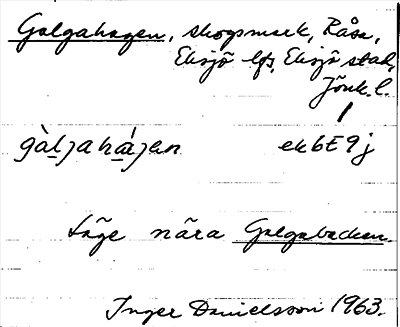 Galgahagen, skogsmark, Råsa,
Eksjö lfs, Eksjö stad,
Jönk. l.
gàljahájen ek6E9j
Läge nära Galgabacken
Inger Danielsson 1963.